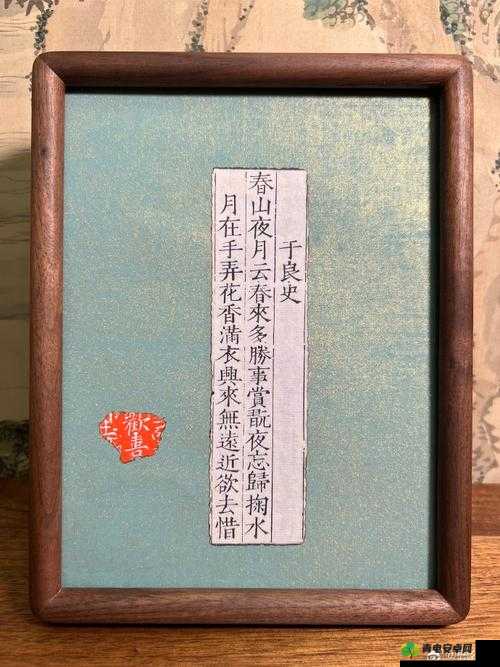 于良史
春山夜月云春來多勝事賞翫夜忘歸掬水
月在手弄花香滿衣興來無遠近欲去惜
歡喜
青电安卓网